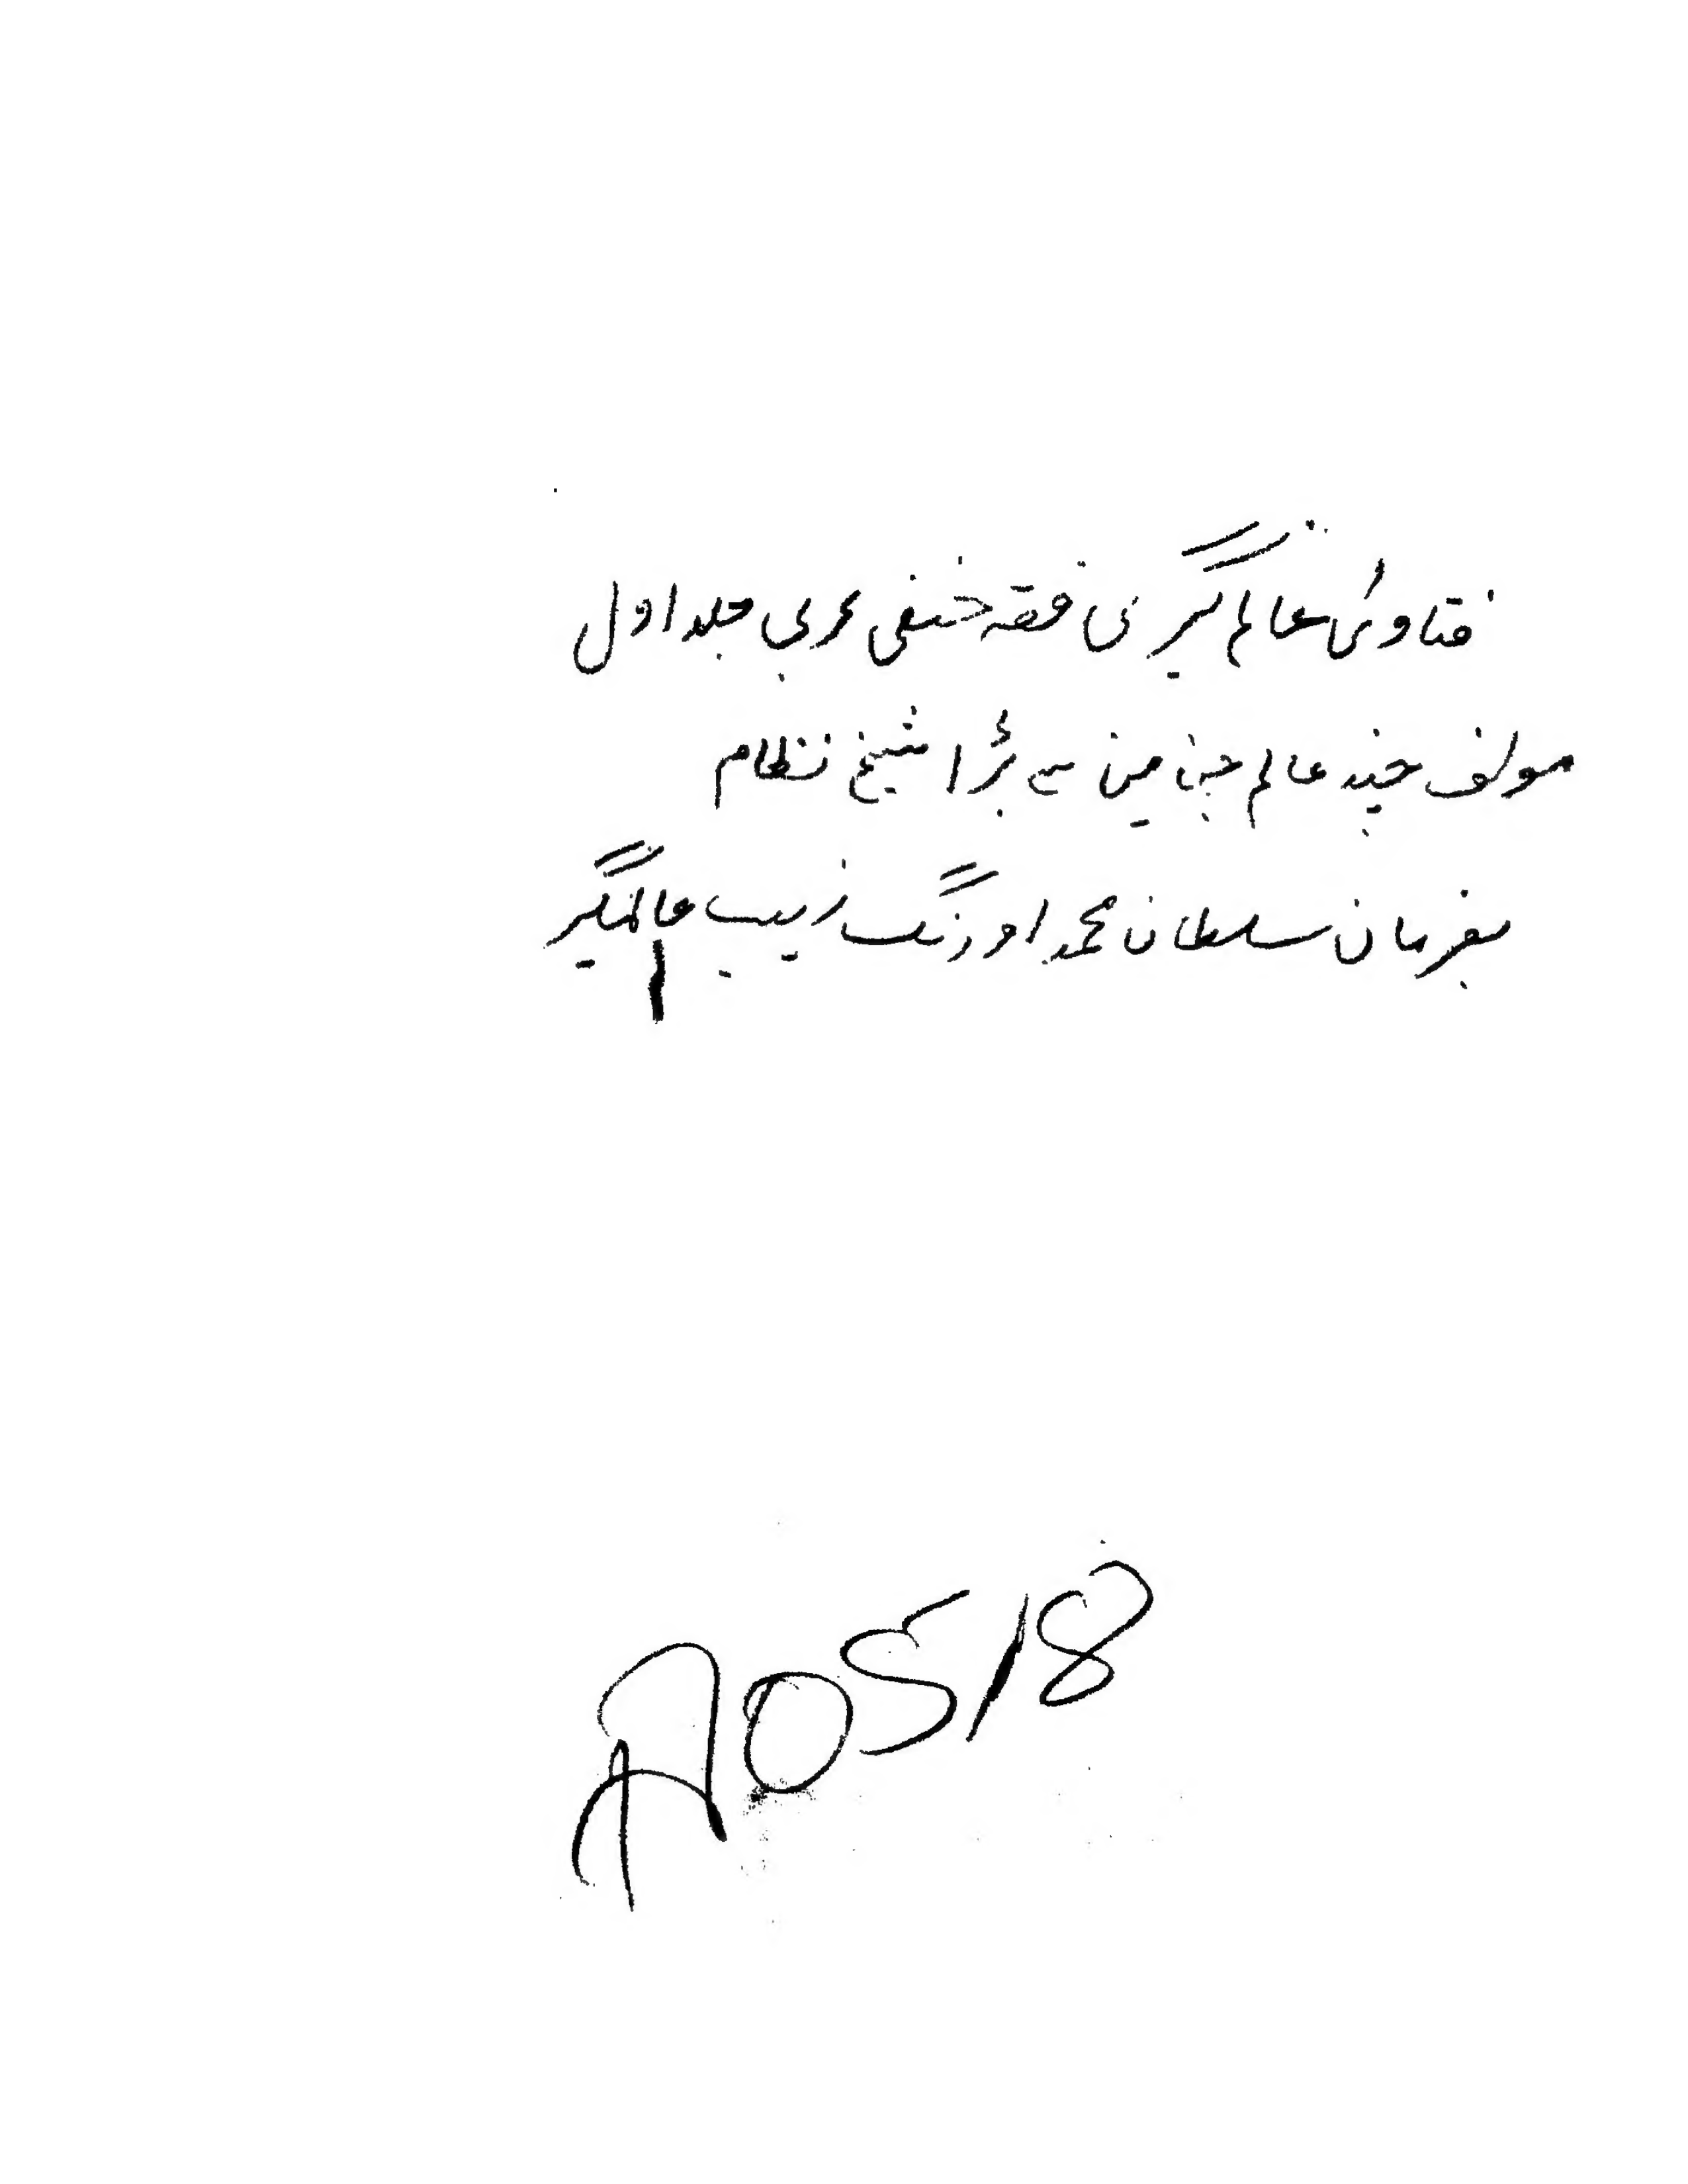 فتاوىٰ عالم گیری فقہ حنفی عربی جلد اول
مولف چند عالم جن مین سے بڑا شیخ نظام
بفرمان سلطان محمد اورنگ زیب عالمگیر
A0518